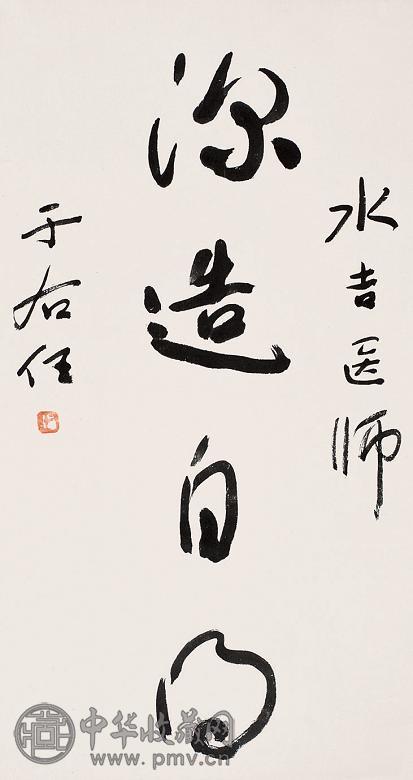 水吉医师
深造自得
于右任
中华收藏网
www.pmv.cn